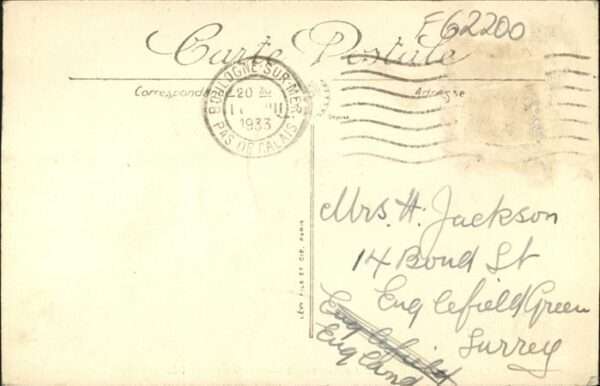 F62200
Carte Postale
Correspondance
Adresse
BOULOGNE-SUR-MER
20 30
1933
PAS DE CALAIS
LEVY FILS ET CIE. PARIS
Mrs. H. Jackson
14 Bond St
Englefield Green
Surrey
Englefield
England